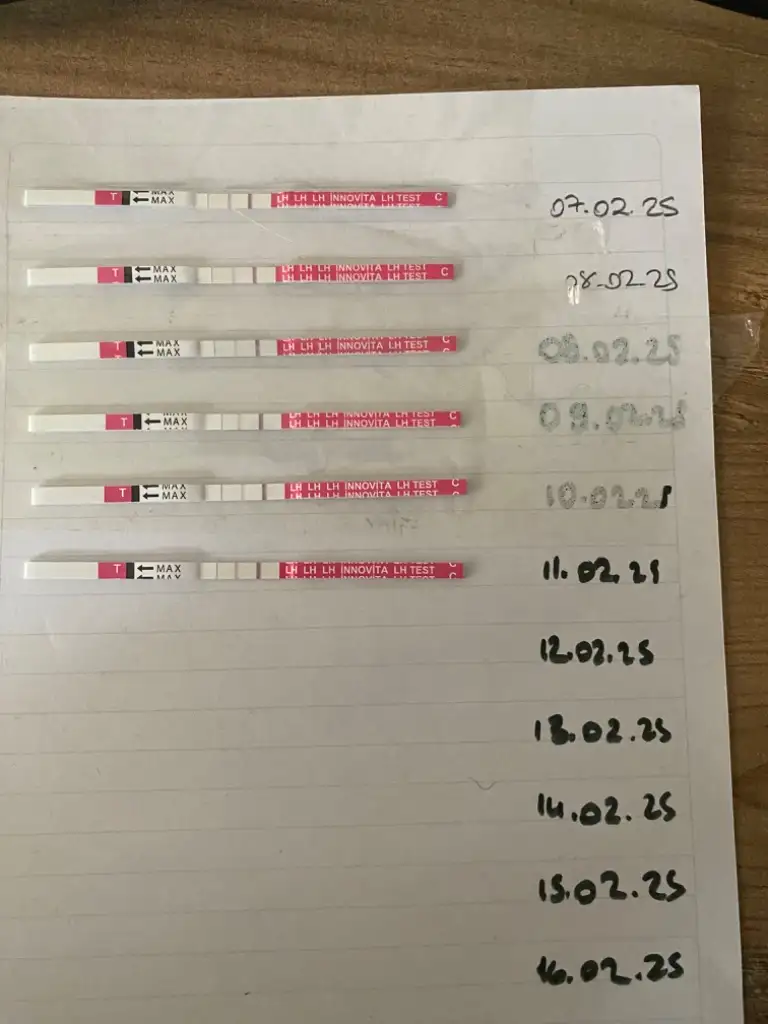 T MAX MAX LH LH LH INNOVITA LH TEST C 07.02.25
T MAX MAX LH LH LH INNOVITA LH TEST LH LH LH INNOVITA LH TEST C 08.02.25
T MAX MAX LH LH LH INNOVITA LH TEST C C 08.02.25
T MAX MAX LH LH LH INNOVITA LH TEST LH LH LH INNOVITA LH TEST C C 09.02.25
T MAX MAX LH LH LH INNOVITA LH TEST LH LH LH INNOVITA LH TEST C C 10.02.25
T MAX MAX LH LH LH INNOVITA LH TEST C C 11.02.25
12.02.25
13.02.25
14.02.25
15.02.25
16.02.25